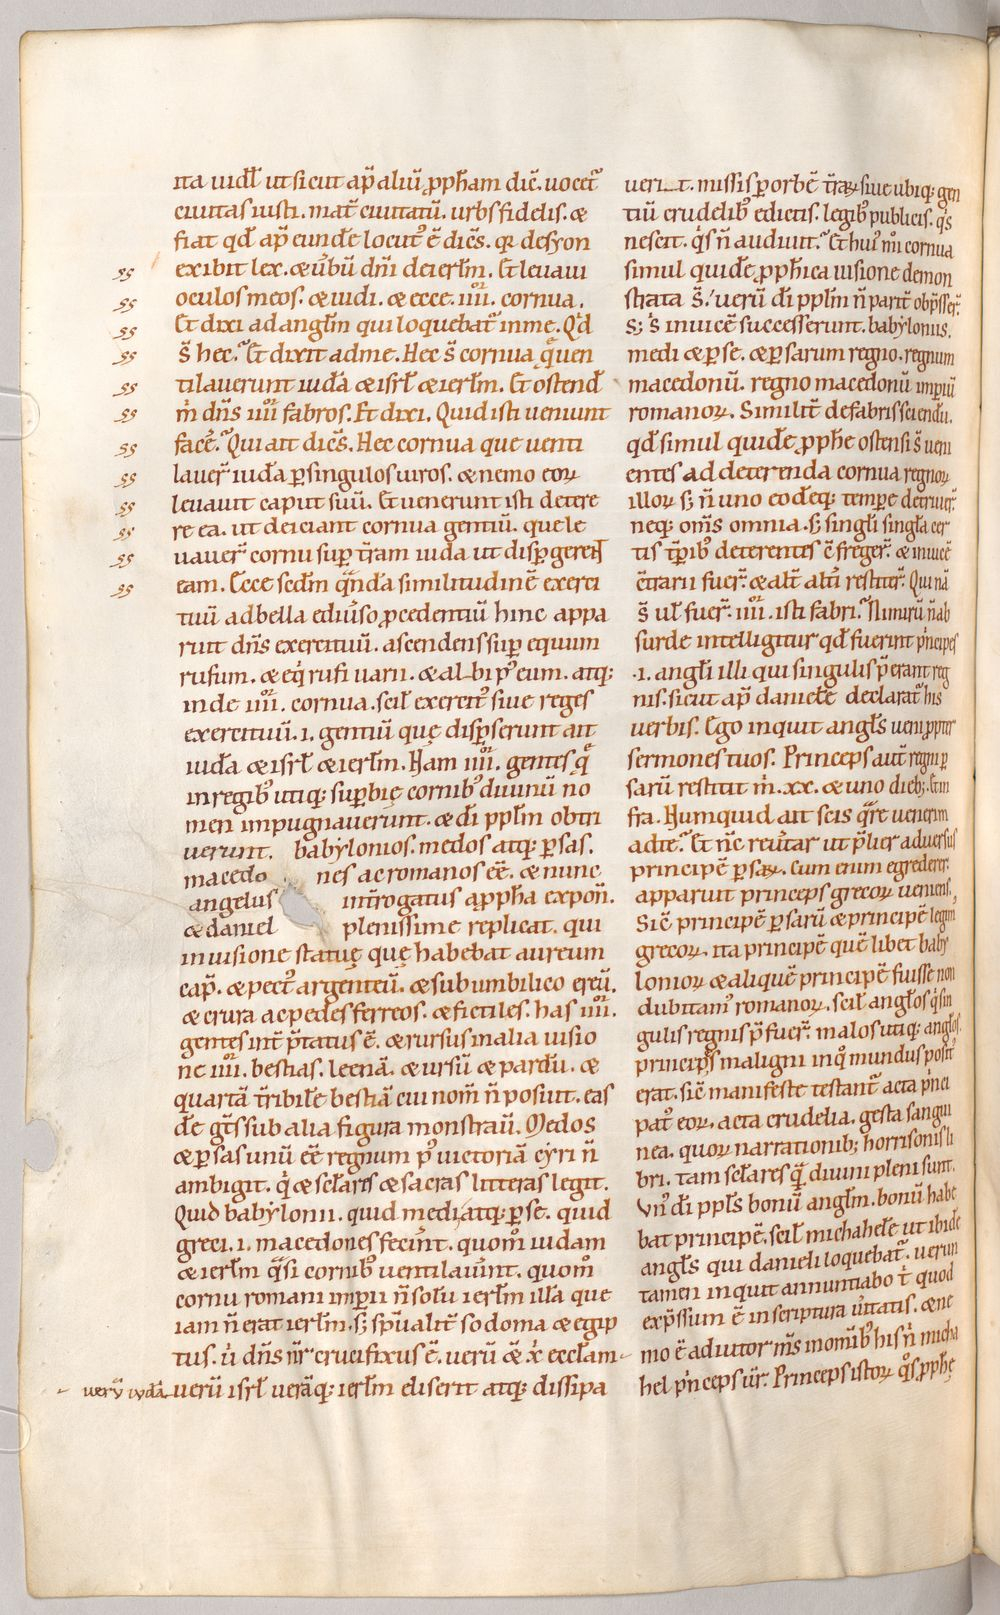 ita uidl̄ ut sicut ap̄ aliū p̱ph̄am diē. uocet᷑
ciuitas iusti. mat̄ ciuitatū. urbs fidelis. &
fiat qd̄ ap̄ eund̄e locut᷒ ē diēs. qr de syon
exibit lex. & ūbū dn̄i de ierl̄m. Et leuaui
oculos meos. & uidi. & ecce. iiii.or cornua.
Et dixi ad angl̄m qui loquebat᷑ in me. Qͥd
s̄ hec? Et dixit ad me. Hec s̄ cornua q̄ uen
tilauerunt iud̄a & isrl̄ & ierl̄m. Et ostend̄
m̄ dn̄s iiiior fabros. Et dixi. Quid isti ueniunt
facē? Qui ait diēs. Hec cornua que uenti
lauer̄ iud̄a p̱ singulos uiros. & nemo eoꝝ
leuauit caput suū. Et uenerunt isti detere
re ea. ut deiciant cornua gentiū. que le
uauer̄ cornu sup̱ tr̄am iuda ut disp̱gerent
eam. Ecce sed̄m q̄nd̄a similitudinē exerci
tuū ad bella ediūso p̱cedentiū hinc appa
ruit dn̄s exercituū. ascendens sup̱ equum
rufum. & eq̄i rufi uarii. & al-bi p᷒ eum. atq;
inde iiii.or cornua. scil̄ exercit᷒ siue reges
exercituū. i. gentiū quę disp̱serunt ait
iud̄a & isrl̄ & ierl̄m. Nam iiii.or gentes q̄
in regib᷒ utiq; sup̱bię cornib᷒ diuinū no
men impugnauerunt. & dī ppl̄m obtri
uerunt. babylonios. medos atq; p̱sas.
macedo nes ac romanos eē. & nunc
angelus int̄rogatus a p̱ph̄a expon̄.
& daniel plenissime replicat. qui
in uisione statuę quę habebat aureum
cap̄. & pect᷒ argenteū. & sub umbilico ereū.
& crura ac pedes ferreos. & fictiles. has iiii.or
gentes int̄ p̄tatus ē. & rursus in alia uisio
ne iiii.or bestias. leenā. & ursū & pard̄u. &
quartā tr̄ribil̄e bestiā cui nom̄ n̄ posuit. eas
d̄e gt̄s sub alia figura monstrauī. Medos
& p̱sas unū eē regnum p᷒ uictoriā cyri n̄
ambigit. qͥ & scl̄ares & sacras litteras legit.
Quid babylonii. quid medi atq; p̱se. quid
greci. i. macedones fecīnt. quom̊ iudam
& ierl̄m q̄si cornib᷒ uentilauīnt. quom̊
cornu romani imp̱ii n̄ solū ierl̄m ill̄a que
iam n̄ erat ierl̄m. s; sp̄ualit̄ sodoma & egip
tus. uͥ dn̄s nr̄ crucifixus ē. uerū & x̄i eccl̄am
uerū isrl̄ uerāq; ierl̄m eiserit atq; dissipa
uerū iudā
ueri t. missis p̱ orbē tr̄aꝝ siue ubiq; gen
tiū crudelib᷒ edictis. legib᷒ publicis. qͥs
nescit. qͥs n̄ audiuit? Et hui᷒ m̊i cornua
simul quid̄e p̱ph̄ica uisione demon
strata s̄. uerū dī ppl̄m n̄ parit̄ obp̄sser̄.
s; sͥ inuicē successerunt. babylonius.
medi & p̱se. & p̱sarum regno. regnum
macedonū. regno macedonū imp̱iū
romanoꝝ. Similit̄ de fabris sciend̄u.
qd̄ simul quid̄e p̱ph̄e ostensi s̄ ueni
entes ad deterenda cornua regnoꝝ
illoꝝ s; n̄ uno eod̄eq; temp̱e detriuer̄.
neq; om̄s omnia. s; singl̄i singl̄a cer
tis t̄p̱ib᷒ deterentes c̄freger̄. & inuicē
c̄trarii fuer̄. & alt̄ alt̄i restiter̄. Qui nā
s̄ ul̄ fuer̄. iiii.or isti fabri? Nimirū n̄ ab
surde intelligitur qd̄ fuerint pͥncipes
.i. angl̄i illi qui singulis p̄erant reg
nis. sicut ap̄ daniel̄e declarat᷑ his
uerbis. Ego inquit angl̄s ueni ꝓpter
sermones tuos. Princeps aut̄ regni p̱
sarū restitit m̄. xx. & uno dieb; . Et in
fra. Numquid ait scis q̄re uenerim
ad te? Et nc̄ reuītar ut p̄lier aduersus
principē p̱saꝝ. Cum enim egrederer.
apparuit princeps grecoꝝ ueniens.
Sic̄ principē p̱sarū & principē legim
grecoꝝ. ita principē quē libet baby
lonioꝝ & aliquē principē fuisse non
dubitam᷒ romanoꝝ. scil̄ angl̄os qͥ sin
gulis regnis p̄fuer̄. malos utiq; angl̄os.
principes maligni in q̊ mundus posit᷒
erat. sic̄ manifeste testant᷑ acta pͥnci
pat᷒ eoꝝ. acta crudelia. gesta sangui
nea. quoꝝ narrationib; horrisonis li
bri. tam scl̄ares q̄ diuini pleni sunt.
Vn᷒ dī ppl̄s bonū angl̄m. bonū habe
bat principē. scil̄ michahel̄e ut ibid̄e
angl̄s qui danieli loquebat᷑. uerun
tamen inquit annuntiabo tͥ quod
exp̄ssum ē in scriptura uītatis. & ne
mo ē adiutor ms̄ in omīb᷒ his nͥ micha
hel pͥnceps ūr. Princeps istoꝝ q̊s p̱ph̄ę